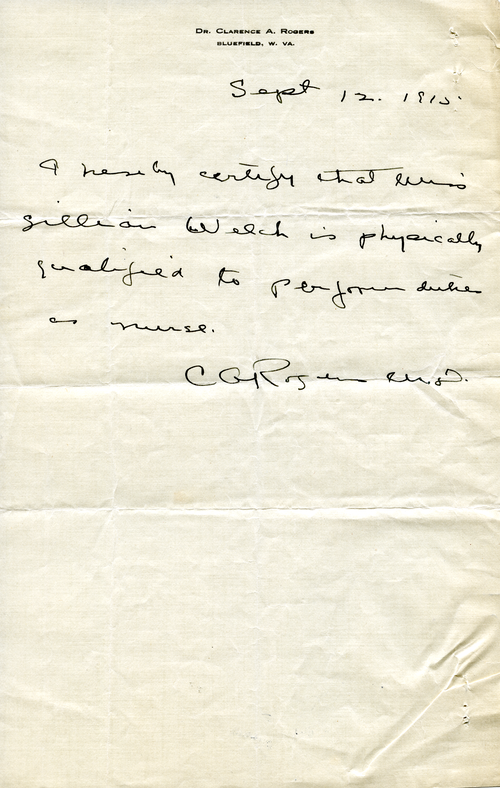 Dr. Clarence A. Rogers
Bluefield, W. Va.
Sept 12. 1915
I hereby certify that Miss
Lillian Welch is physically
qualified to perform duties
as nurse.
C A Rogers M.D.